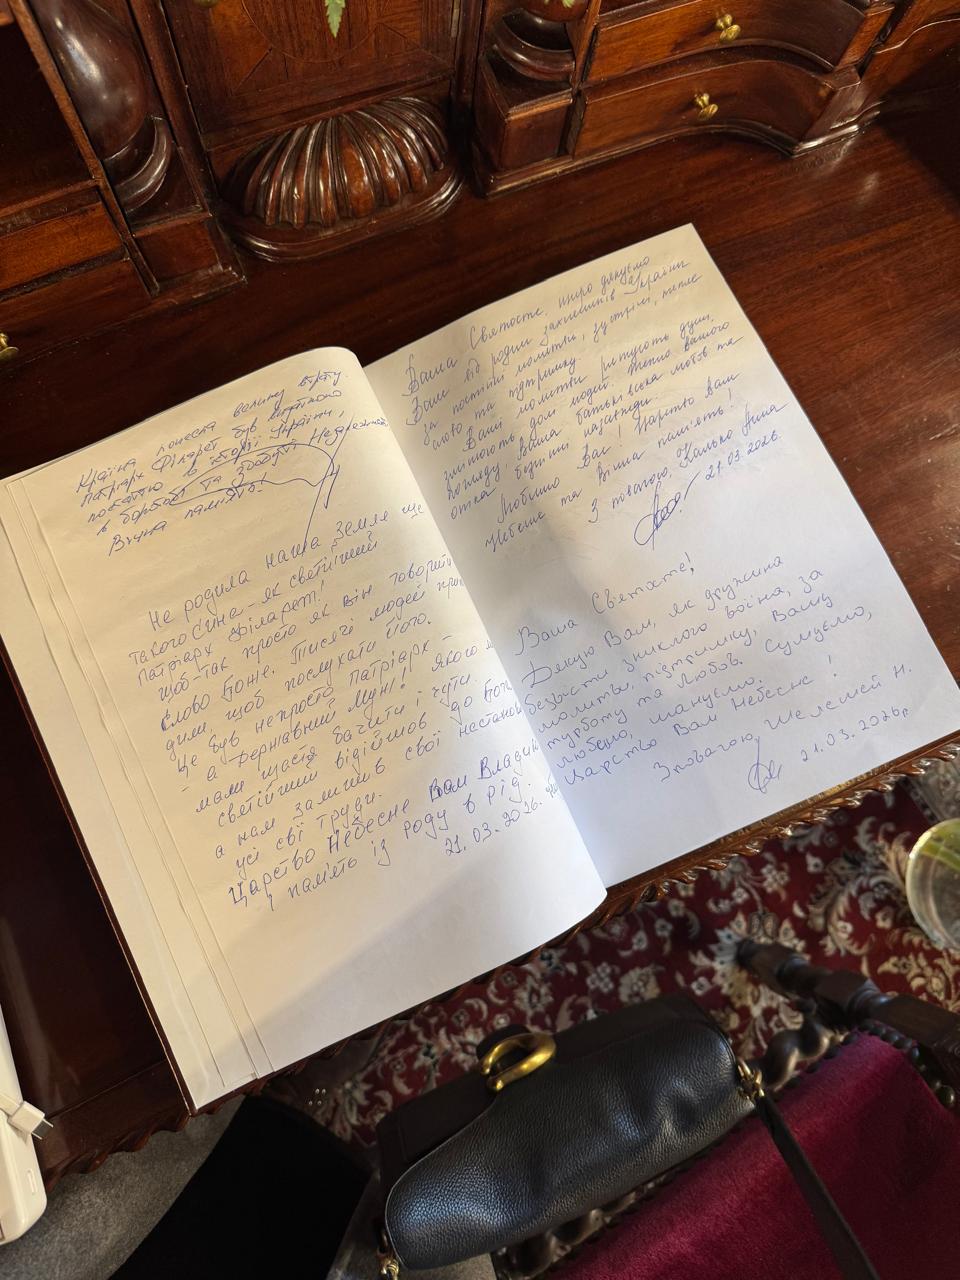 Країна понесла велику втрату.
Патріарх Філарет був видатною
постаттю в історії України,
в боротьбі та здобутті Незалежності
Вічна пам'ять!
Не родила наша Земля ще
такого Сина - як святіший
Патріарх Філарет!
Щоб - так просто як він говорити
Слово Боже. Тисячі людей
щоб послухати його.
Це був непросто патріарх -
а Державний Муж! якого
мали щастя бачити і чути.
Святіший відійшов до Бога
а нам залишив свої настанови
усі свої труди.
Царство Небесне Вам Владико
і пам'ять із роду в рід.
21.03.2026.
Ваша Святосте, щиро дякуємо
Вам від родин Захисників України
за постійні молитви, зустрічі, тепле
слово та підтримку.
Ваші молитви рятують душі,
змінюють долі людей. Тепло вашого
погляду, Ваша батьківська любов та
опіка безцінні назавжди.
Любимо Вас! Царство Вам
Небесне та Вічна пам'ять!
З повагою, Калько Анна
21.03.2026.
Ваша Святосте!
Дякую Вам, як дружина
безвісти зниклого воїна, за
молитви, підтримку, Вашу
турботу та любов. Сумуємо,
любимо, шануємо.
Царство Вам Небесне!
З повагою, Шелемей Н.
21.03.2026р